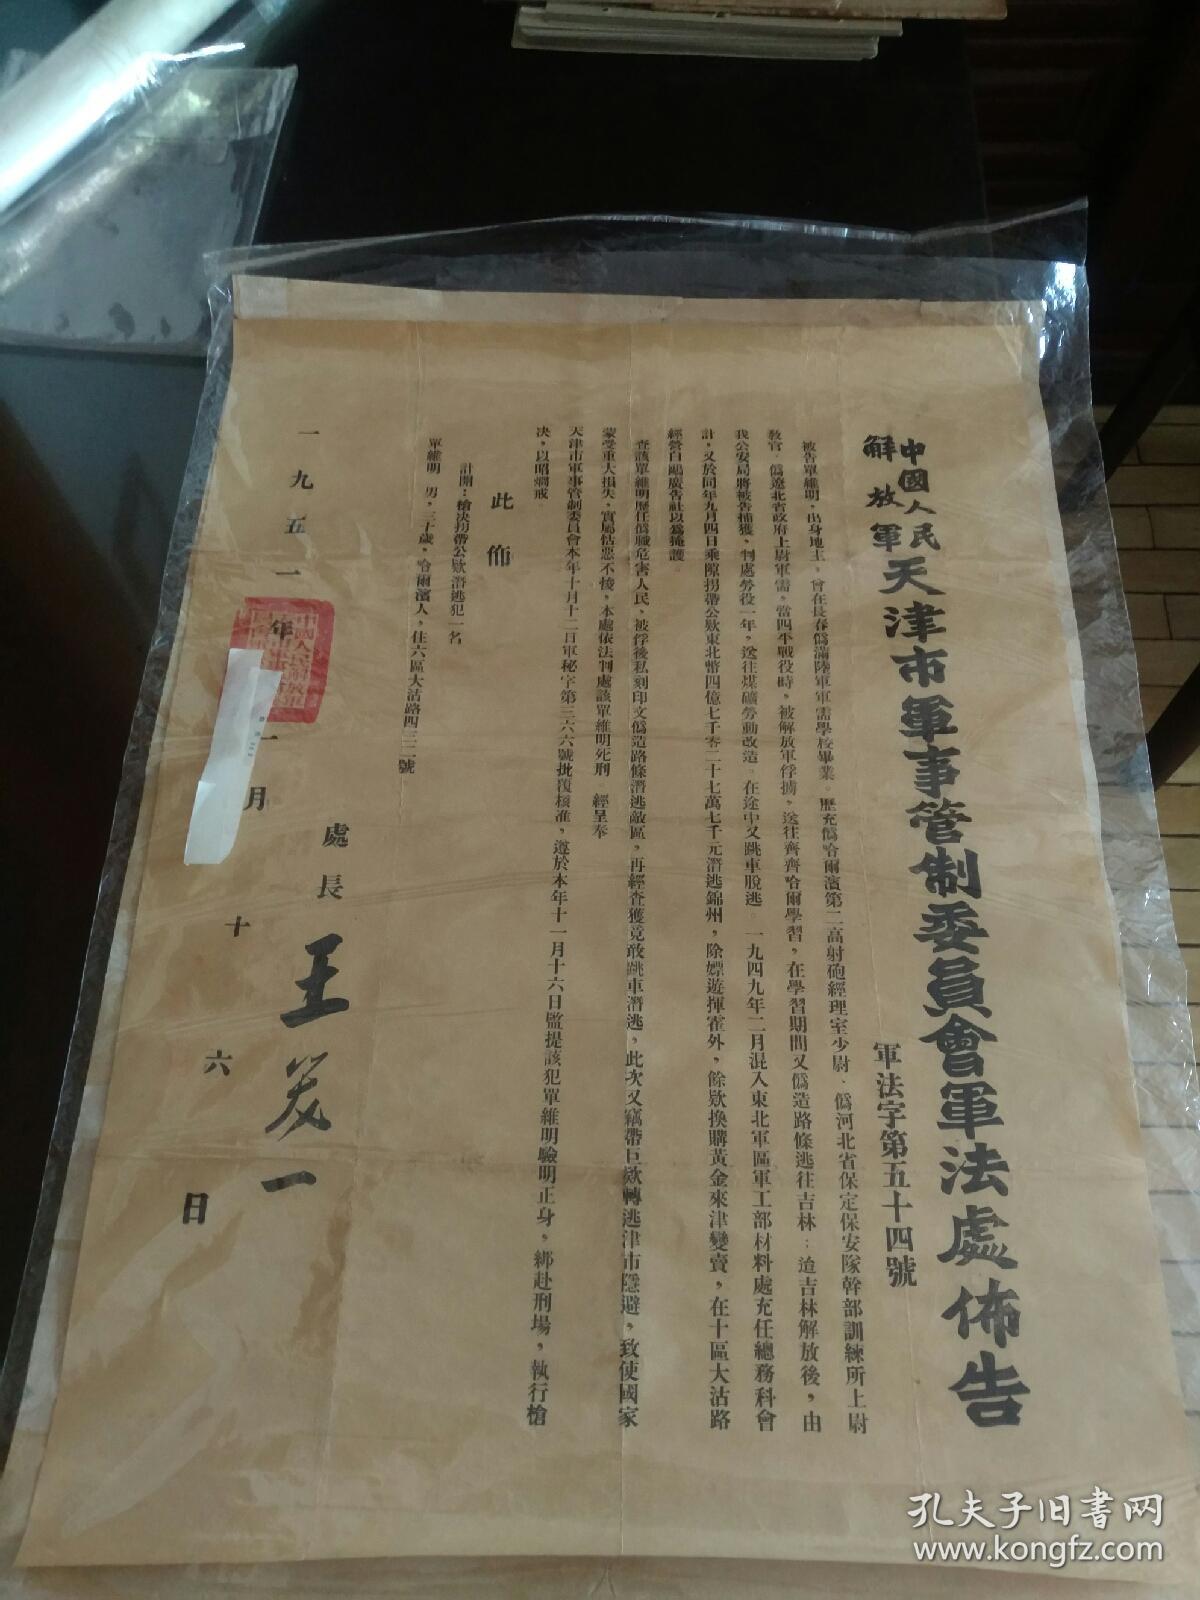 中國人民
解放軍
天津市軍事管制委員會軍法處佈告
軍法字第五十四號
被告單維明，出身地主，曾在長春僞滿陸軍軍需學校畢業。歷充僞哈爾濱第二高射砲經理室少尉、僞河北省保定保安隊幹部訓練所上尉
教官、僞遼北省政府上尉軍需，當四平戰役時，被解放軍俘擄，送往齊齊哈爾學習，在學習期間又僞造路條逃往吉林；迨吉林解放後，由
我公安局將被告捕獲，判處勞役一年，送往煤礦勞動改造。在途中又跳車脫逃。一九四九年二月混入東北軍區軍工部材料處充任總務科會
計，又於同年九月四日乘隙拐帶公欵東北幣四億七千零二十七萬七千元潛逃錦州，除嫖遊揮霍外，餘欵換購黃金來津變賣，在十區大沽路
經營白鷗廣告社以爲掩護。
查該單維明歷任僞職危害人民，被俘後私刻印文僞造路條潛逃敵區，再經查獲竟敢跳車潛逃，此次又竊帶巨欵轉逃津市隱避，致使國家
蒙受重大損失，實屬怙惡不悛，本處依法判處該單維明死刑。經呈奉
天津市軍事管制委員會本年十月十二日軍秘字第三六六號批覆核准，遵於本年十一月十六日監提該犯單維明驗明正身，綁赴刑場，執行槍
决，以昭烱戒。
此佈
計開：槍决拐帶公欵潛逃犯一名
單維明　男，三十歲，哈爾濱人，住六區大沽路四三二號。
處長　王　一
一九五一年　一月十六日
孔夫子旧书网
www.kongfz.com